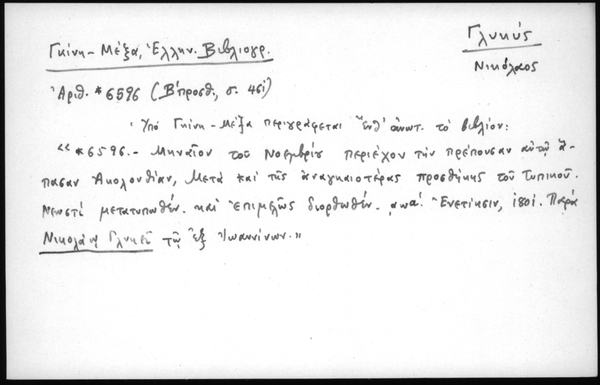 Γλυκύς
Νικόλαος
Γκίνη - Μέξα, Ἑλλην. Βιβλιογρ.
Ἀριθ. *6596 (Β΄προσθ., σ. 461)
Ὑπό Γκίνη - Μέξα περιγράφεται ἔνθ' ἀνωτ. τό βιβλίον:
"*6596.- Μηναῖον τοῦ Νοεμβρίου περιέχον τήν πρέπουσαν αὐτῷ ἅ-
πασαν Ἀκολουθίαν, Μετά καί τῆς ἀναγκαιοτέρας προσθήκης τοῦ Τυπικοῦ.
Νεωστί μετατυπωθέν. καί Ἐπιμελῶς διορθωθέν. αωα! Ἐνετίῃσιν, 1801. Παρά
Νικολάῳ Γλυκεῖ τῷ ἐξ Ἰωαννίνων."